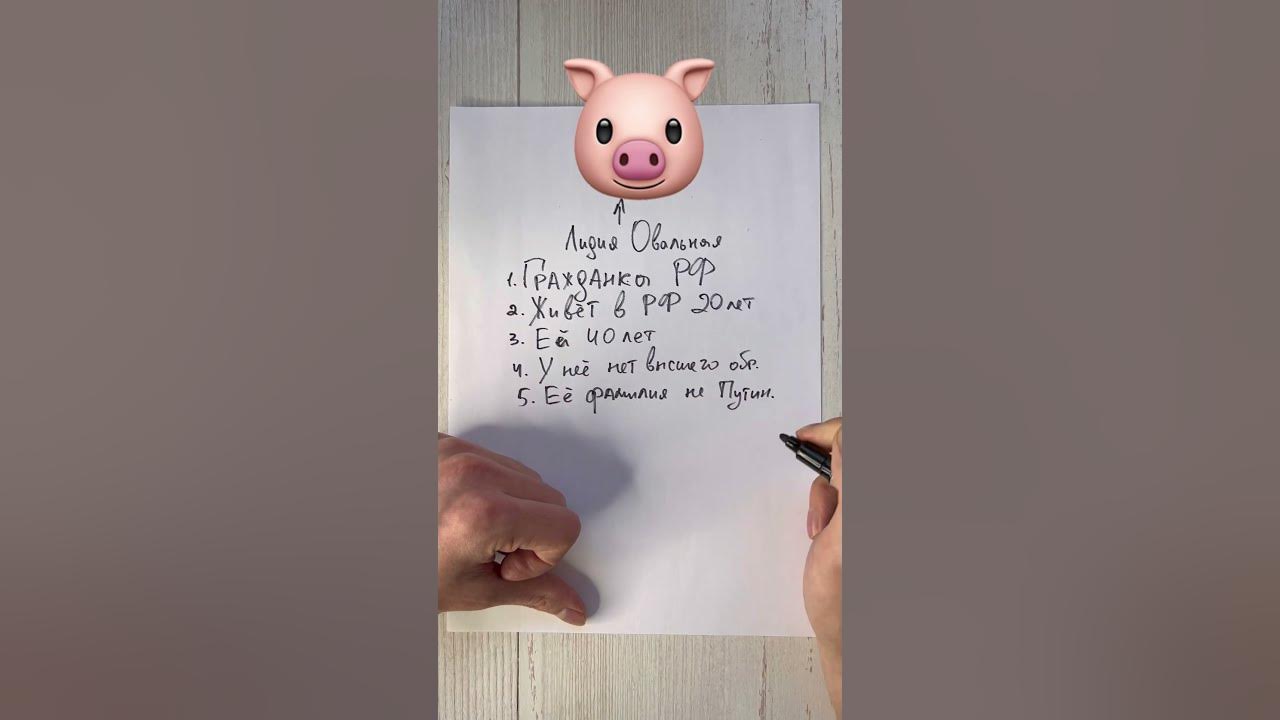 Лидия Овальная
1. Гражданка РФ
2. Живёт в РФ 20 лет
3. Ей 40 лет
4. У неё нет высшего обр.
5. Её фамилия не Путин.